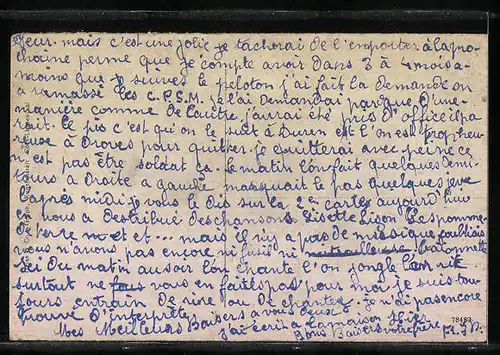 jeur. mais c'est une jolie je tacherai de l'emporter à la pro-
chaine perme que je compte avoir dans 3 à 4 mois a-
moins que je suives le peloton j'ai fait la demande on
a ramassé les C.P.S.M. je l'ai demandai parce que d'une
manière comme de l'autre j'aurai été pris d'office il pa
rait. le pis c'est qu'on le suit à Duren et l'on est trop heu-
reuse à Droves pour quitter. je quitterai avec peine ce
n'est pas être soldat ça. le matin l'on fait quelques demi-
tours à droite a gauche masquait le pas quelques jeux
l'après midi je vous le dis sur la 2e carte aujourd'hui
on nous a destribué des chansons Lisette Lison Les pomme-
de terre et et... mais il n'y a pas de musique j'oubliais
nous n'avons pas encore ni fusil ni mitrailleuse baïonnette
Ici du matin au soir l'on chante l'on jongle l'on rit
surtout ne vous en faites pas pour moi je suis tou-
jours entrain de rire ou de chanter. je n'ai pas encore
trouvé d'interprète
Mes Meilleurs Baisers a vous deux
j'ai écrit a la maison hier
Bons Baisers votre frère
78482